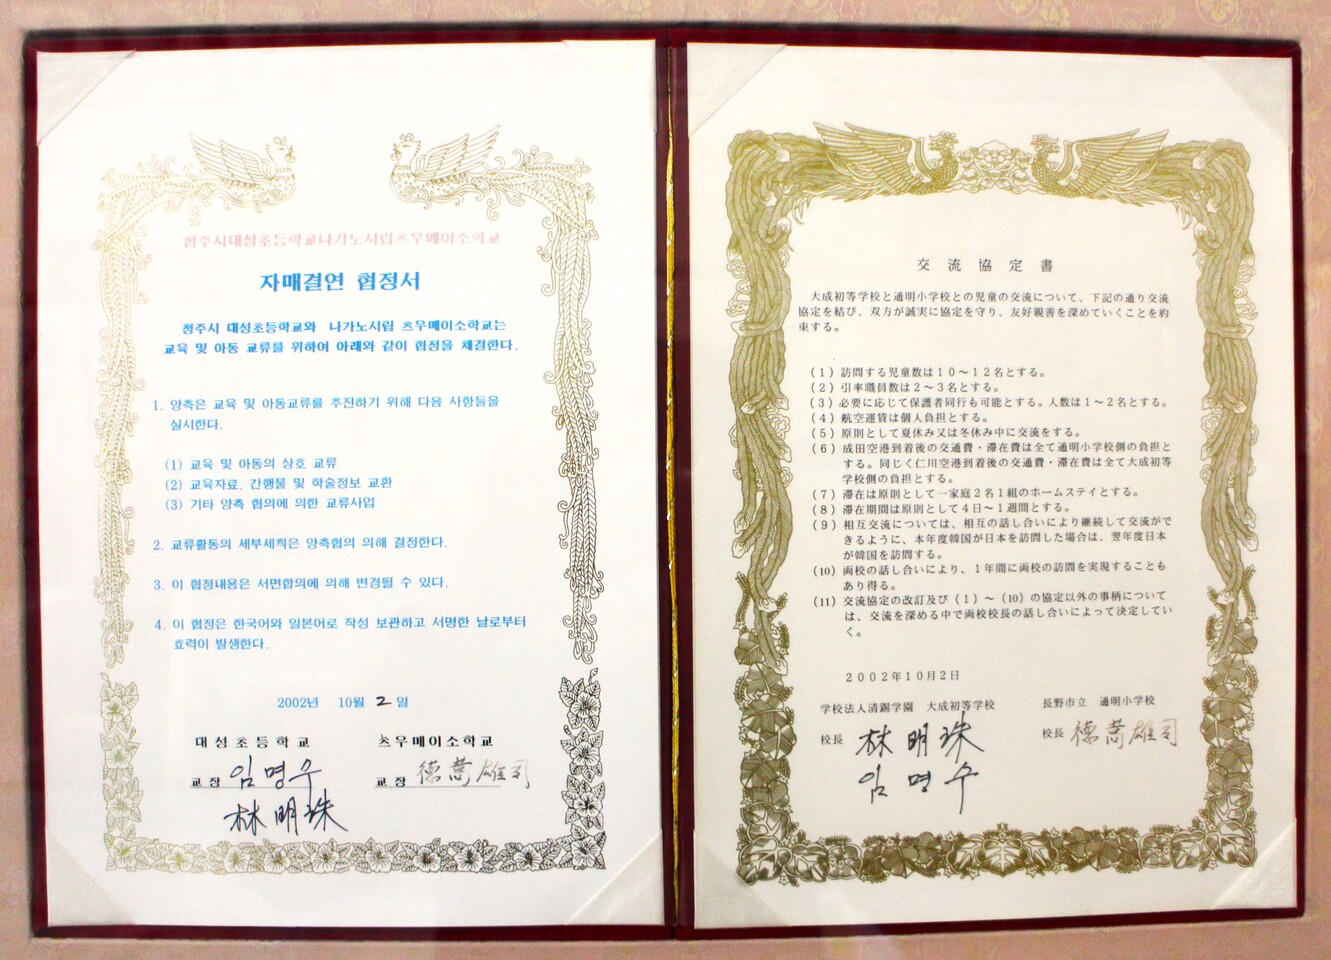 청주시대성초등학교나가노시립츠우메이소학교
자매결연 협정서
청주시 대성초등학교와 나가노시립 츠우메이소학교는
교육 및 아동 교류를 위하여 아래와 같이 협정을 체결한다.
1. 양측은 교육 및 아동교류를 추진하기 위해 다음 사항들을
실시한다.
(1) 교육 및 아동의 상호 교류
(2) 교육자료, 간행물 및 학술정보 교환
(3) 기타 양측 협의에 의한 교류사업
2. 교류활동의 세부세칙은 양측협의 의해 결정한다.
3. 이 협정내용은 서면합의에 의해 변경될 수 있다.
4. 이 협정은 한국어와 일본어로 작성 보관하고 서명한 날로부터
효력이 발생한다.
2002년 10월 2 일
대성초등학교 츠우메이소학교
교장 임명수 교장 德嵩雄司
林明珠
交流協定書
大成初等学校と通明小学校との児童の交流について、下記の通り交流
協定を結び、双方が誠実に協定を守り、友好親善を深めていくことを約
束する。
(1) 訪問する児童数は10～12名とする。
(2) 引率職員数は2～3名とする。
(3) 必要に応じて保護者同行も可能とする。人数は1～2名とする。
(4) 航空運賃は個人負担とする。
(5) 原則として夏休み又は冬休み中に交流をする。
(6) 成田空港到着後の交通費・滞在費は全て通明小学校側の負担と
する。同じく仁川空港到着後の交通費・滞在費は全て大成初等
学校側の負担とする。
(7) 滞在は原則として一家庭2名1組のホームステイとする。
(8) 滞在期間は原則として4日～1週間とする。
(9) 相互交流については、相互の話し合いにより継続して交流がで
きるように、本年度韓国が日本を訪問した場合は、翌年度日本
が韓国を訪問する。
(10) 両校の話し合いにより、1年間に両校の訪問を実現することも
あり得る。
(11) 交流協定の改訂及び(1)～(10)の協定以外の事柄について
は、交流を深める中で両校校長の話し合いによって決定してい
く。
2002年10月2日
学校法人清錫学園 大成初等学校 長野市立 通明小学校
校長 林明珠 校長 德嵩雄司
임명수